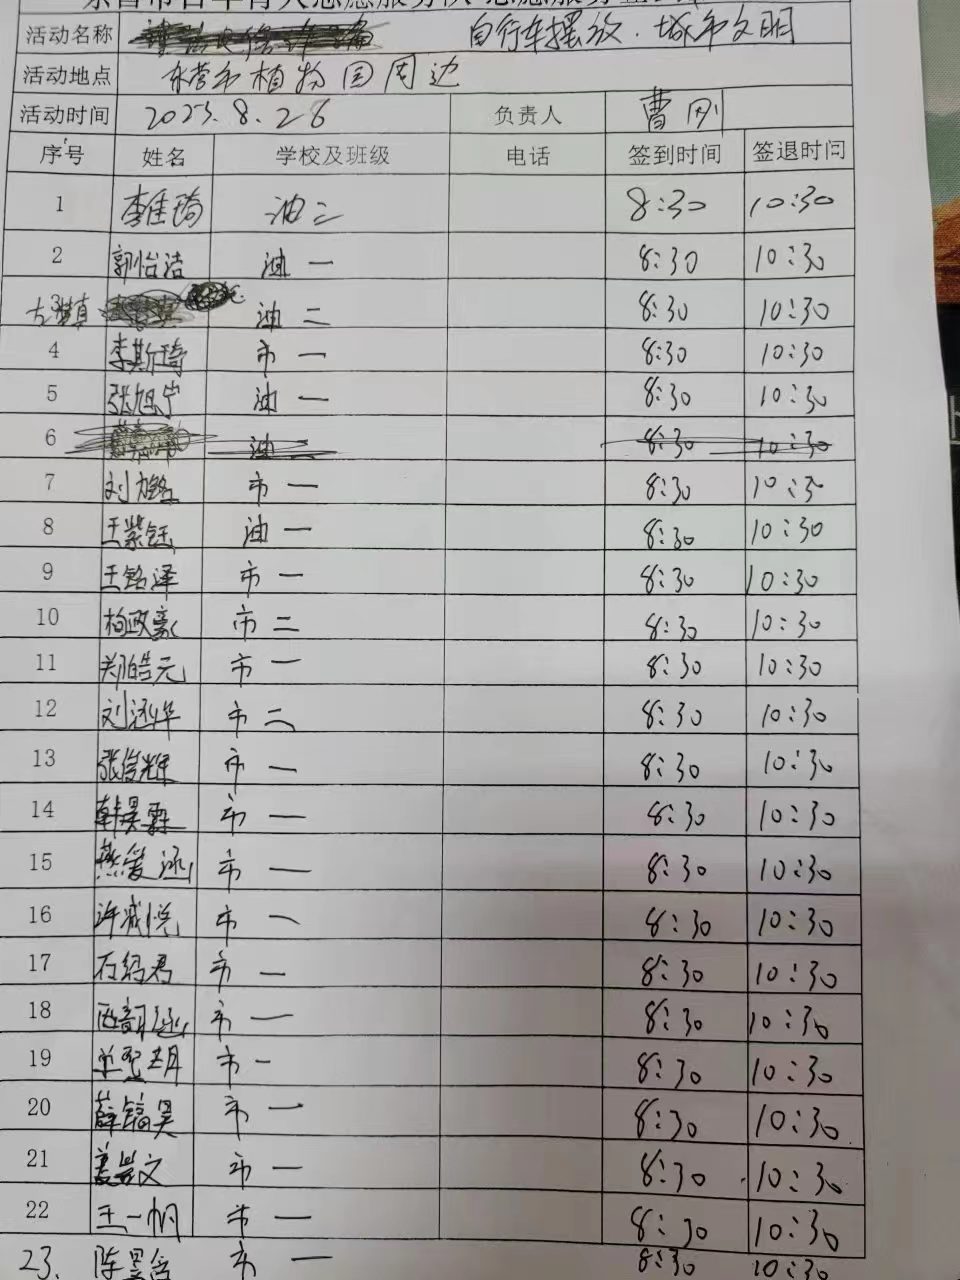 活动名称 自行车摆放.城市文明
活动地点 东营市植物园周边
活动时间 2023.8.26 负责人 曹刚
序号 姓名 学校及班级 电话 签到时间 签退时间
1 李佳琦 油二 8:30 10:30
2 郭怡洁 油一 8:30 10:30
3 油二 8:30 10:30
4 李斯琦 市一 8:30 10:30
5 张旭宁 油一 8:30 10:30
6 油二 8:30 10:30
7 刘 市一 8:30 10:30
8 王紫钰 油一 8:30 10:30
9 王铭泽 市一 8:30 10:30
10 柏政豪 市二 8:30 10:30
11 郑皓元 市一 8:30 10:30
12 刘 市二 8:30 10:30
13 张俊耀 市一 8:30 10:30
14 韩昊霖 市一 8:30 10:30
15 燕爱涵 市一 8:30 10:30
16 许诚悦 市一 8:30 10:30
17 石绍君 市一 8:30 10:30
18 市一 8:30 10:30
19 市一 8:30 10:30
20 薛镐昊 市一 8:30 10:30
21 市一 8:30 10:30
22 王一帆 市一 8:30 10:30
23. 陈 市一 8:30 10:30